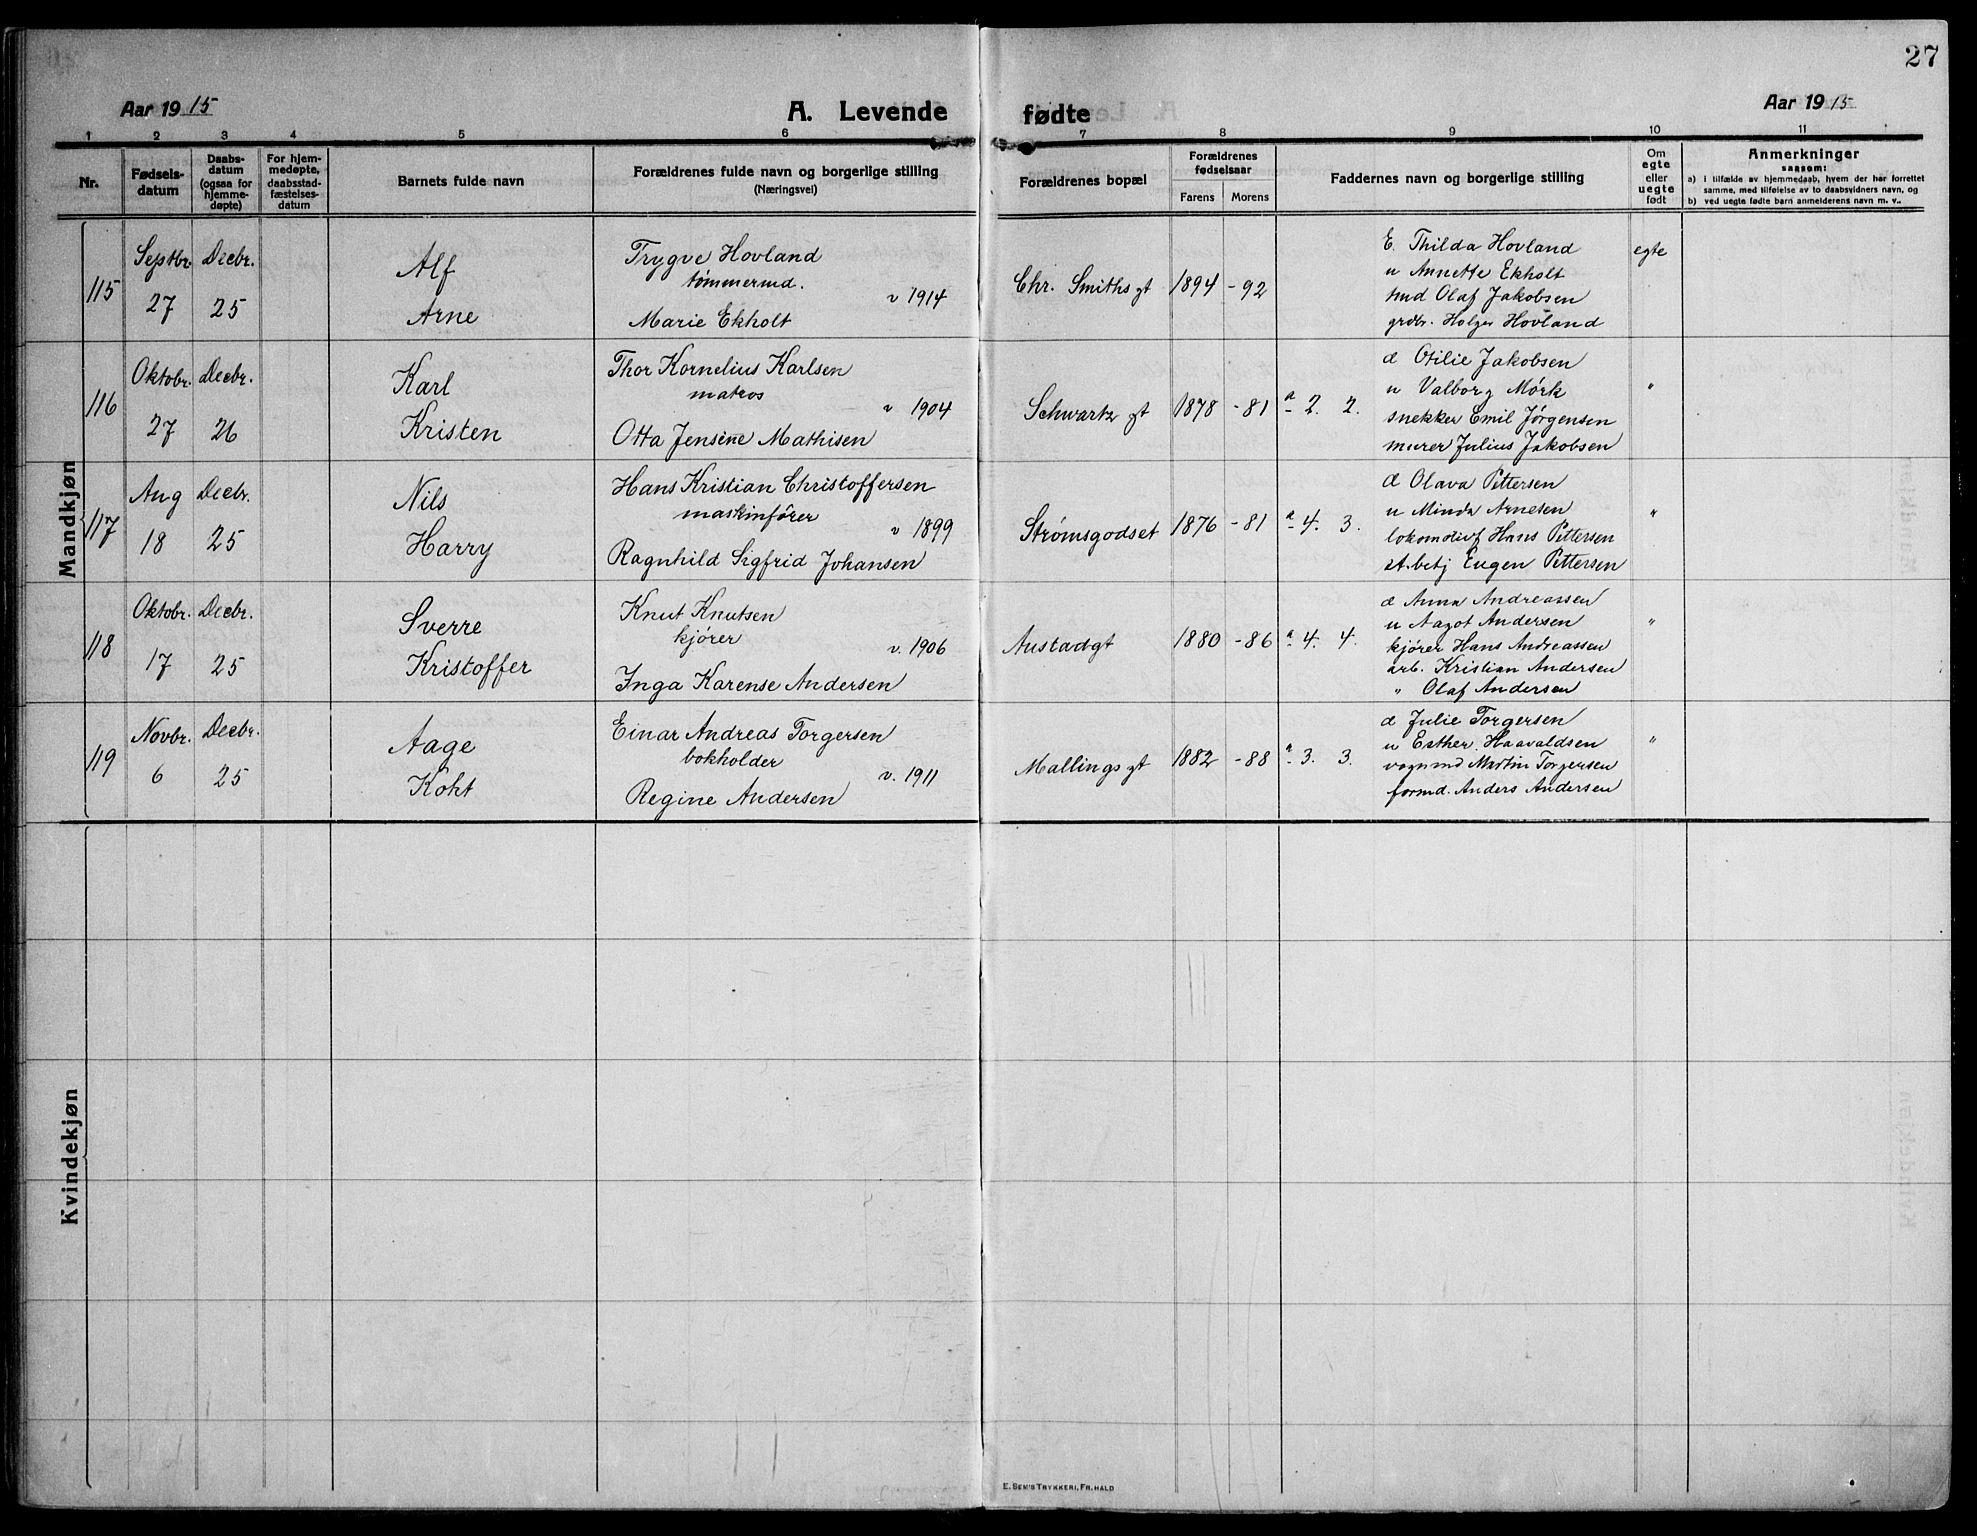 27
Aar 1915
A. Levende
fødte
Aar 1915
1 2 3 4 5 6 7 8 9 10 11
Nr.
Fødsels-
datum
Daabs-
datum
(ogsaa for
hjemme-
døpte)
For hjem-
medøpte,
daabsstad-
fæstelses-
datum
Barnets fulde navn
Forældrenes fulde navn og borgerlige stilling
(Næringsvei)
Forældrenes bopæl
Forældrenes
fødselsaar
Farens Morens
Faddernes navn og borgerlige stilling
Om
egte
eller
uegte
født
Anmerkninger
sansom:
a) i tilfælde av hjemmedaab, hvem der har forrettet
samme, med tilføielse av to daabsvidners navn, og
b) ved uegte fødte barn anmelderens navn m. v..
Mandkjøn
115
Septbr.
27
Decbr.
25
Alf
Arne
Trygve Hovland
tømmermd.
v 1914
Marie Ekholt
Chr. Smiths gt
1894 - 92
E. Thilda Hovland
u Annette Ekholt
tmd Olaf Jakobsen
grdbr. Holger Hovland
egte
116
Oktobr.
27
Decbr.
26
Karl
Kristen
Thor Kornelius Karlsen
matros
v 1904
Otta Jensine Mathisen
Schwartz gt
1878 - 81
a 2. 2.
d Otilie Jakobsen
u Valborg Mörk
snekker Emil Jørgensen
murer Julius Jakobsen
"
117
Aug
18
Decbr.
25
Nils
Harry
Hans Kristian Christoffersen
maskinfører
v 1899
Ragnhild Sigfrid Johansen
Strømsgodset
1876 - 81
a 4. 3.
d Olava Pettersen
u Minda Arnesen
lokomotivf Hans Pettersen
st.betj Eugen Pettersen
"
118
Oktobr.
17
Decbr.
25
Sverre
Kristoffer
Knut Knutsen
kjører
v. 1906
Inga Karense Andersen
Austadgt
1880 - 86
a 4. 4.
d Anna Andreassen
u Aagot Andersen
kjører Hans Andreassen
arb. Kristian Andersen
" Olaf Andersen
"
119
Novbr.
6
Decbr.
25
Aage
Koht
Einar Andreas Torgersen
bokholder
v. 1911
Regine Andersen
Mallings gt
1882 - 88
a 3. 3.
d Julie Torgersen
u Esther Haavaldsen
vognmd Martin Torgersen
formd. Anders Andersen
"
Kvindekjøn
E. SEM'S TRYKKERI, FR.HALD